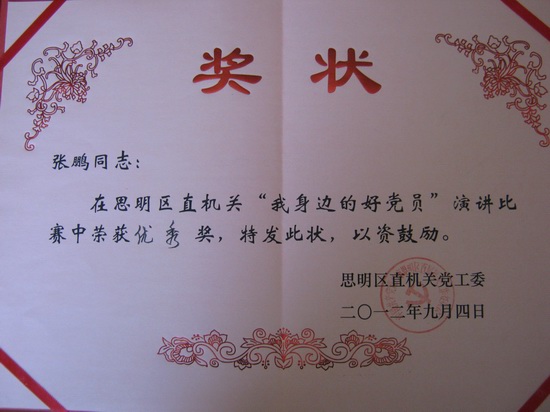 奖状
张鹏同志：
在思明区直机关“我身边的好党员”演讲比
赛中荣获优秀奖，特发此状，以资鼓励。
思明区直机关党工委
二〇一二年九月四日